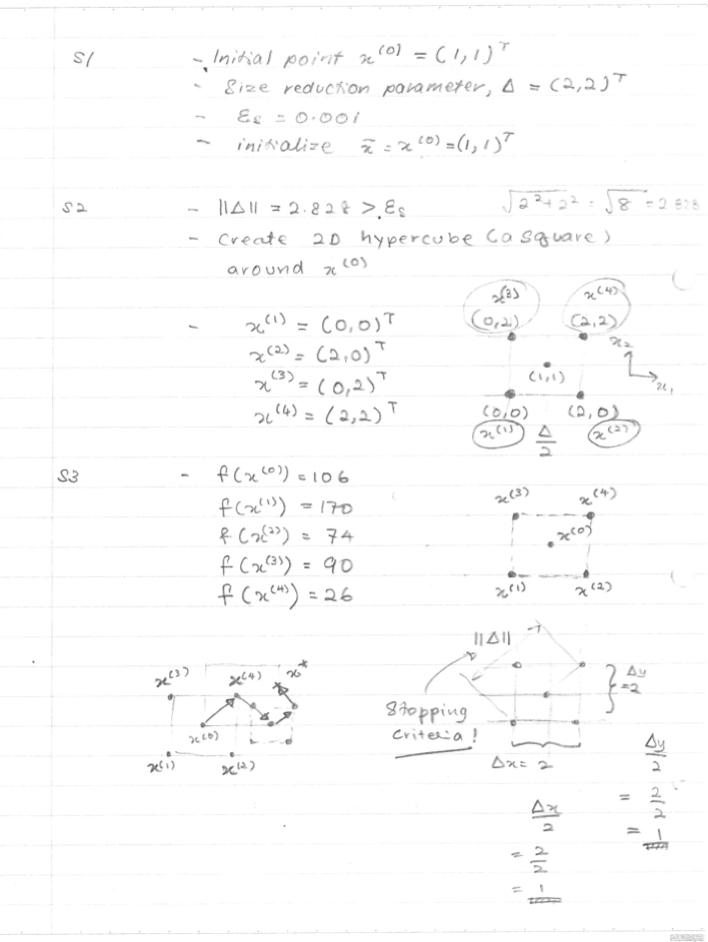 S1 - Initial point x^(0) = (1,1)^T
- Size reduction parameter, Δ = (2,2)^T
- ε_s = 0.001
- initialize x̄ = x^(0) = (1,1)^T
S2 - ||Δ|| = 2.828 > ε_s √2²+2² = √8 = 2.828
- Create 2D hypercube (a square)
around x^(0)
x^(3) x^(4)
- x^(1) = (0,0)^T (0,2) (2,2)
x^(2) = (2,0)^T x₂
x^(3) = (0,2)^T (1,1) x₁
x^(4) = (2,2)^T (0,0) (2,0)
x^(1) Δ/2 x^(2)
S3 - f(x^(0)) = 106
f(x^(1)) = 170 x^(3) x^(4)
f(x^(2)) = 74 x^(0)
f(x^(3)) = 90
f(x^(4)) = 26 x^(1) x^(2)
||Δ||
x^(3) x^(4) x* Δy = 2
x^(0) Stopping
Criteria!
x^(1) x^(2) Δx = 2
Δy/2
= 2/2
= 1
Δx/2
= 2/2
= 1